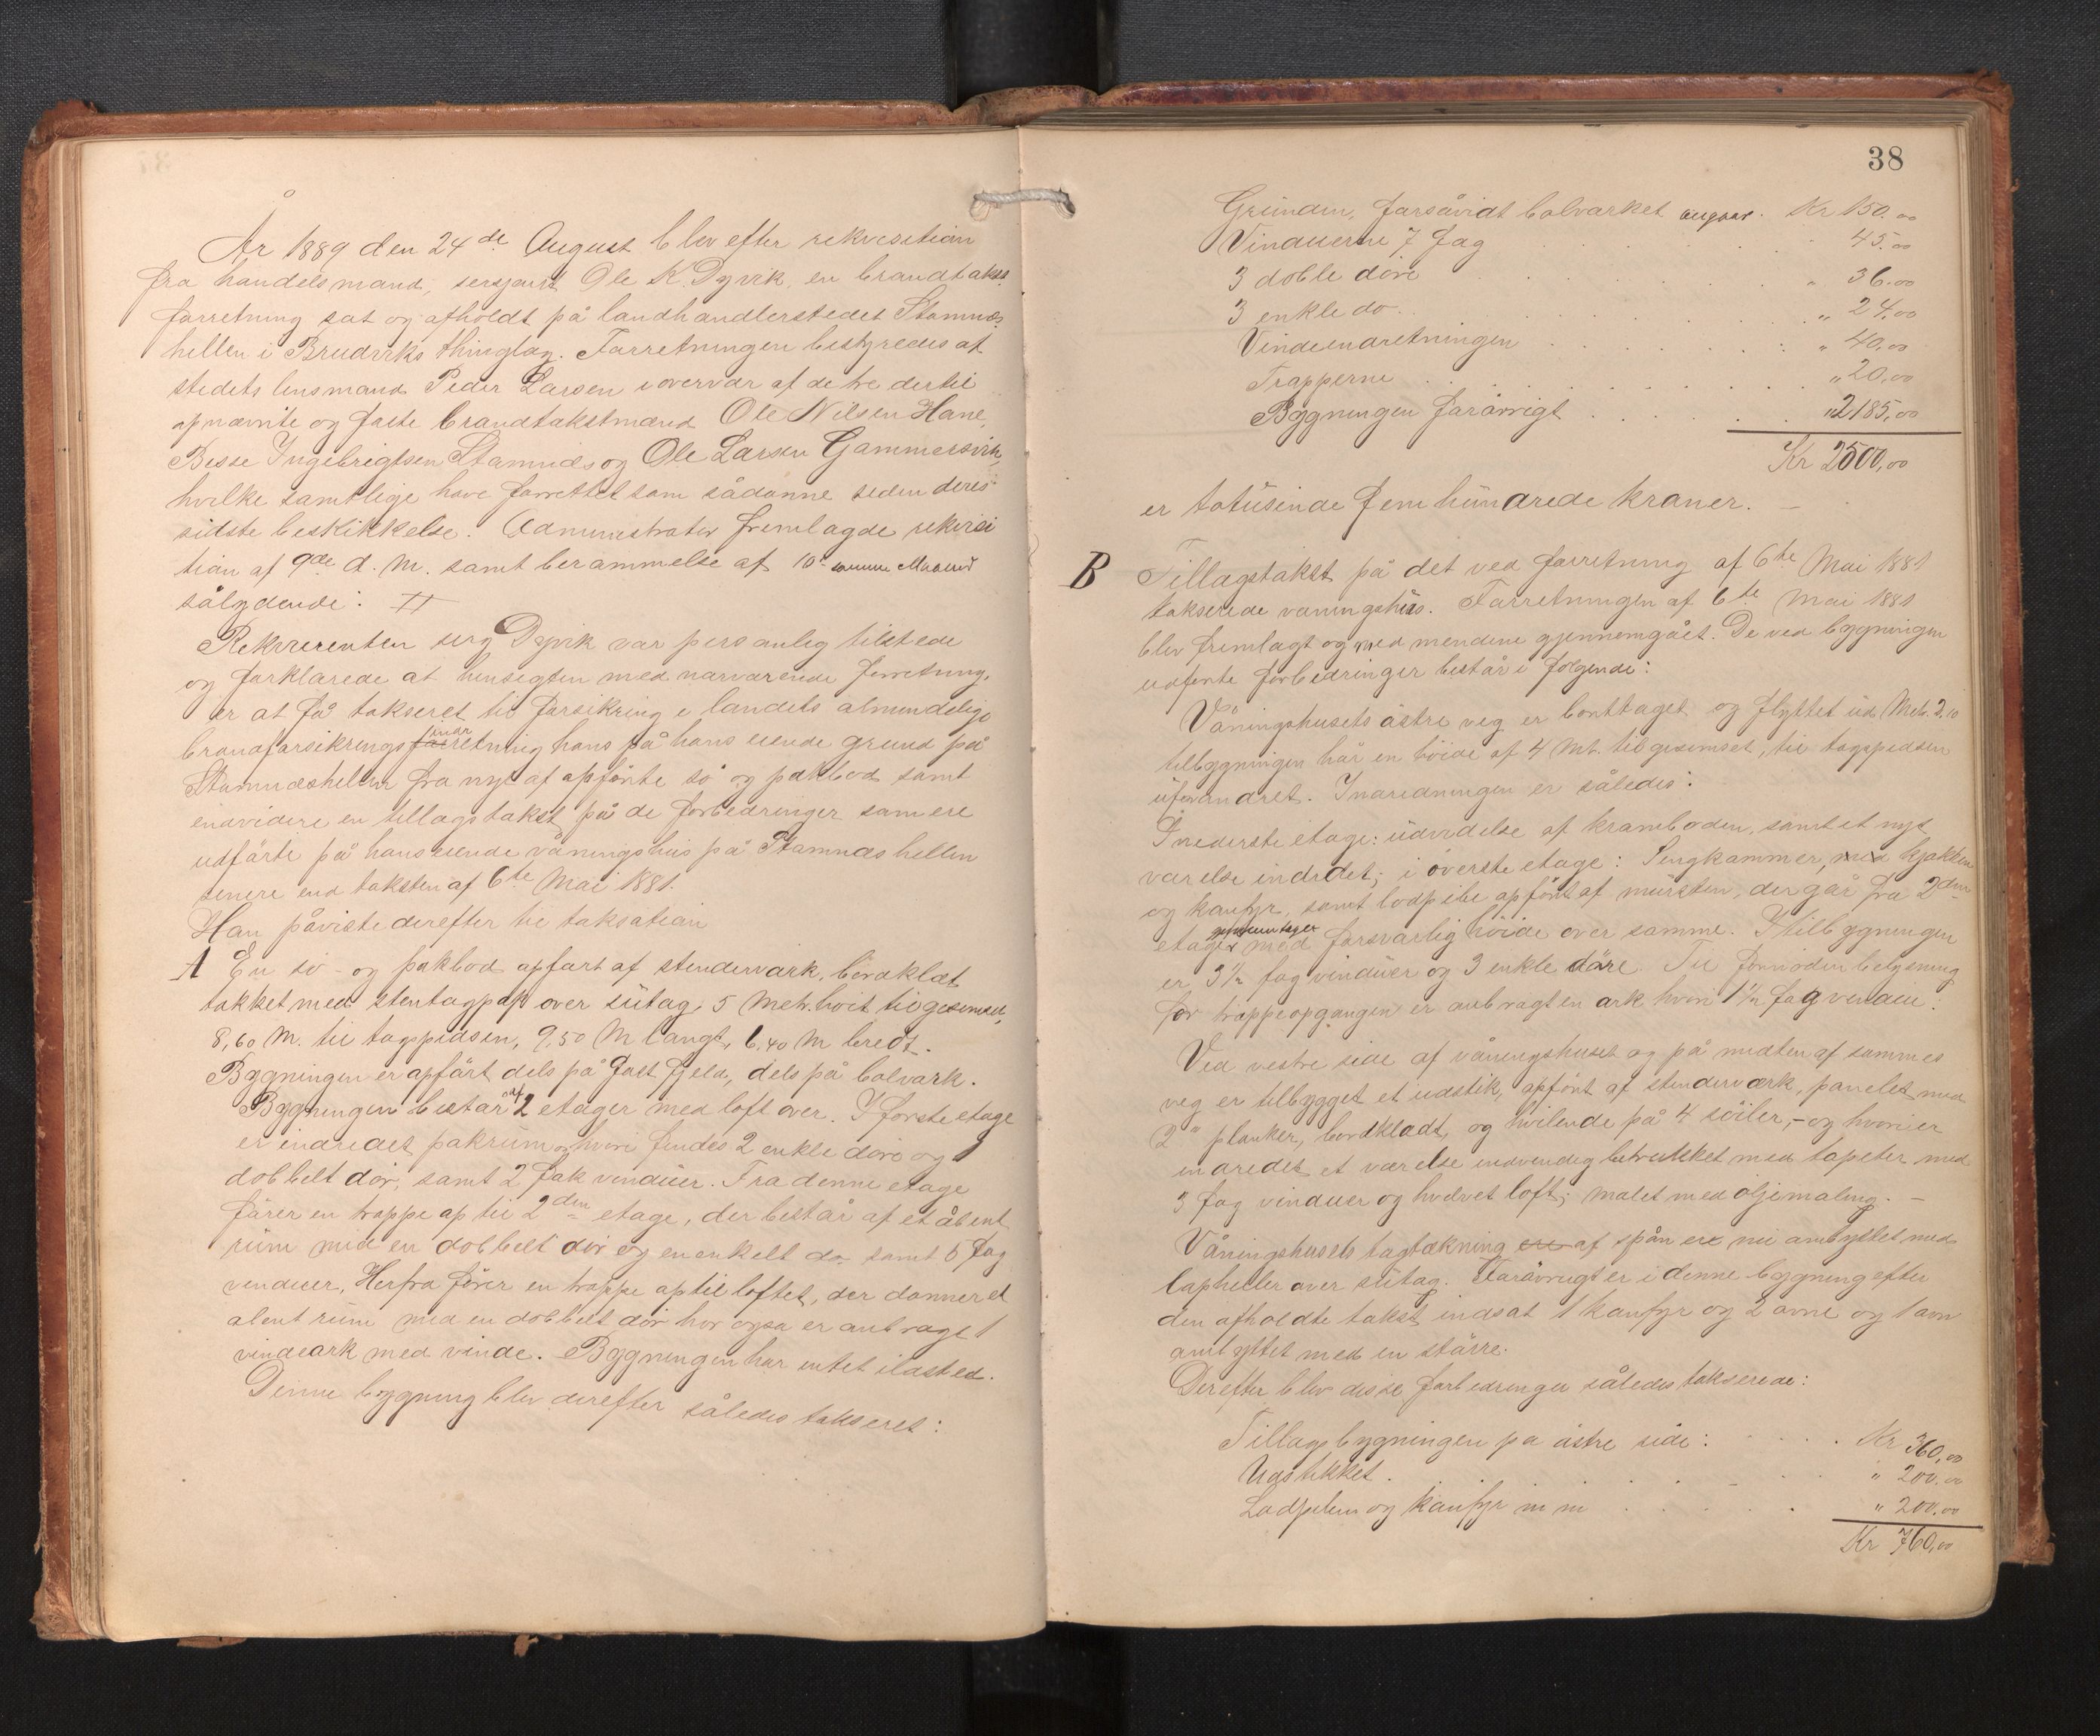 År 1889 den 24de August blev efter rekvisition
fra handelsmand, sersjant Ole K. Dyvik, en brandtakst-
forretning sat og afholdt på landhandlerstedet Stamnæs-
hellen i Bruvik thinglag. Forretningen bestyredes af
stedets lensmand Peder Larsen i overvær af de tre dertil
opnævnte og faste brandtakstmænd Ole Nilsen Hane,
Besse Ingebrigtsen Stamnæs og Ole Larsen Gammersvik,
hvilke samtlige have forrettet som sådanne siden deres
sidste beskikkelse. Administrator fremlagde rekvisi
tion af 9de d. M. samt berammelse af 10 samme Maaned
sålydende: #
Rekvirenten serg Dyvik var personlig tilstede
og forklarede at hensigten med nærværende forretning,
er at få takseret til forsikring i landets almindelige
brandforsikringsindretning hans på hans eiende grund på
Stamnæshellen fra nyt af opførte sø og pakbod samt
endvidere en tillægstakst på de forbedringer som ere
udførte på hans eiende våningshus på Stamnæshellen
senere end taksten af 6te Mai 1881.
Han påviste derefter til taksation
A En sø- og pakbod opført af stenderværk, bordklæt
takket med stentagpap over sutag, 5 Metr. høit til gesimset,
8,60 M. til tagspidsen, 9,50 M langt, 6,40 M bredt.
Bygningen er opført dels på fast fjeld, dels på bolværk.
Bygningen består af 2 etager med loft over. I første etage
er indredet pakrum hvori findes 2 enkle døre og 1
dobbelt dør, samt 2 fak vinduer. Fra denne etage
fører en trappe op til 2den etage, der består af et åbent
rum med en dobbelt dør og en enkelt do samt 5 fag
vinduer, Herfra fører en trappe op til loftet, der danner et
åbent rum med en dobbelt dør hvor også er anbragt 1
vindeark med vinde. Bygningen har intet ildsted.
Denne bygning blev derefter således takseret:
38
Grunden, forsåvidt bolværket angaar. Kr 150.00
Vinduerne 7 fag . . . 45.00
3 doble døre . . . " 36.00
3 enkle do . . . " 24.00
Vindeindretningen . . . " 40,00
Trapperne . . . " 20,00
Bygningen forøvrigt . . . " 2185,00
Kr 2500,00
er totusinde fem hundrede kroner. –
B Tillagstakst på det ved forretning af 6te Mai 1881
takserede våningshus. Forretningen af 6te Mai 1881
blev fremlagt og med mændene gjennemgået. De ved bygningen
udførte forbedringer består i følgende:
Våningshusets østre væg er borttaget og flyttet ud Metr. 2,10
tilbygningen har en høide af 4 Mt. til gesimset, til tagspidsen
uforandret. Indredningen er således:
I nederste etage: udvidelse af kramboden, samt et nyt
værelse indredet; i øverste etage: Sengkammer, med kjøkken
og komfyr, samt lodpibe opført af mursten, der går fra 2den
etage gjennem taget med forsvarlig høide over samme. I tilbygningen
er 3½ fag vinduer og 3 enkle døre. Til fornøden belysning
for trappeopgangen er anbragt en ark hvori 1½ fag vindu:
Ved vestre side af våningshuset og på midten af sammes
væg er tilbygget et udstik, opført af stenderværk, panelet med
2" planker, bordklædt, og hvilende på 4 søiler, – og hvori er
indredet et værelse indvendig betrukket med tapeter med
3 fag vinduer og hvelvet loft; malet med oljemaling. –
Våningshusets tagtækning ere af spån ere nu ombyttet med
laphellер over sutag. Forøvrigt er i denne bygning efter
den afholdte takst indsat 1 komfyr og 2 ovne og 1 ovn
ombyttet med en større.
Derefter blev disse forbedringer således takserede:
Tillægsbygningen på østre side: . . . Kr 360,00
Udstikket . . . " 200,00
Lodpiben og komfyr m m . . . " 200,00
Kr 760,00